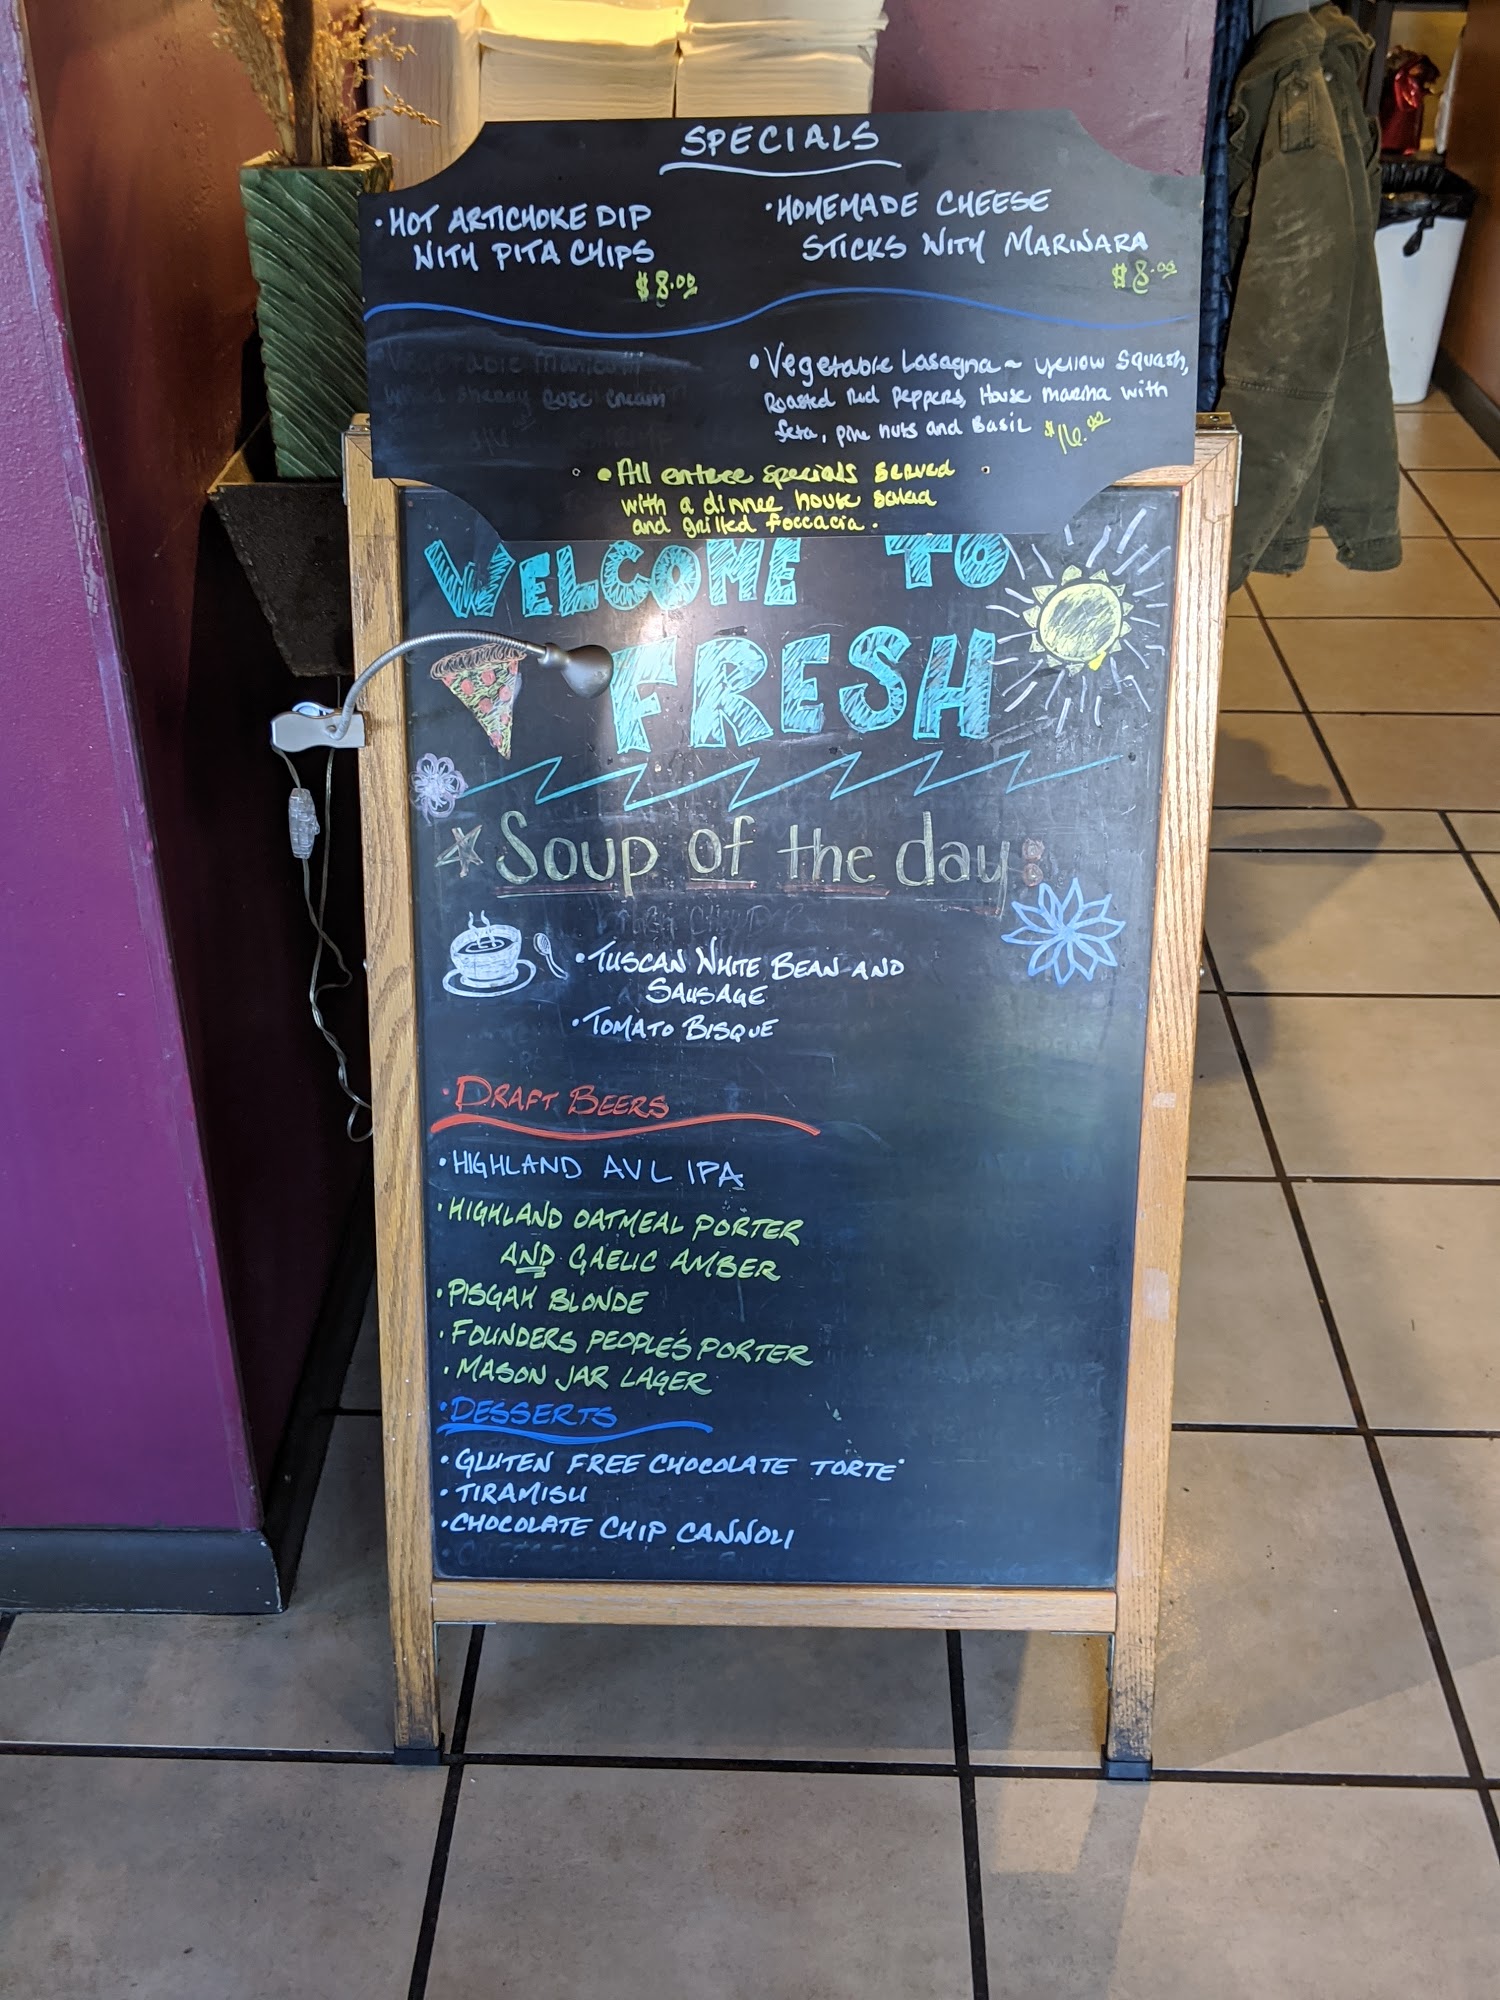 SPECIALS
• HOT ARTICHOKE DIP
WITH PITA CHIPS
$8.00
• HOMEMADE CHEESE
STICKS WITH MARINARA
$8.00
• Vegetable Lasagna ~ Yellow Squash,
Roasted Red Peppers, House marina with
feta, pine nuts and Basil $16.00
Vegetable Manicotti
rose cream
• All entree specials served
with a dinner house salad
and grilled foccacia.
WELCOME TO
FRESH
Soup of the day:
• TUSCAN WHITE BEAN AND
SAUSAGE
• TOMATO BISQUE
• DRAFT BEERS
• HIGHLAND AVL IPA
• HIGHLAND OATMEAL PORTER
AND GAELIC AMBER
• PISGAH BLONDE
• FOUNDERS PEOPLE'S PORTER
• MASON JAR LAGER
• DESSERTS
• GLUTEN FREE CHOCOLATE TORTE
• TIRAMISU
• CHOCOLATE CHIP CANNOLI